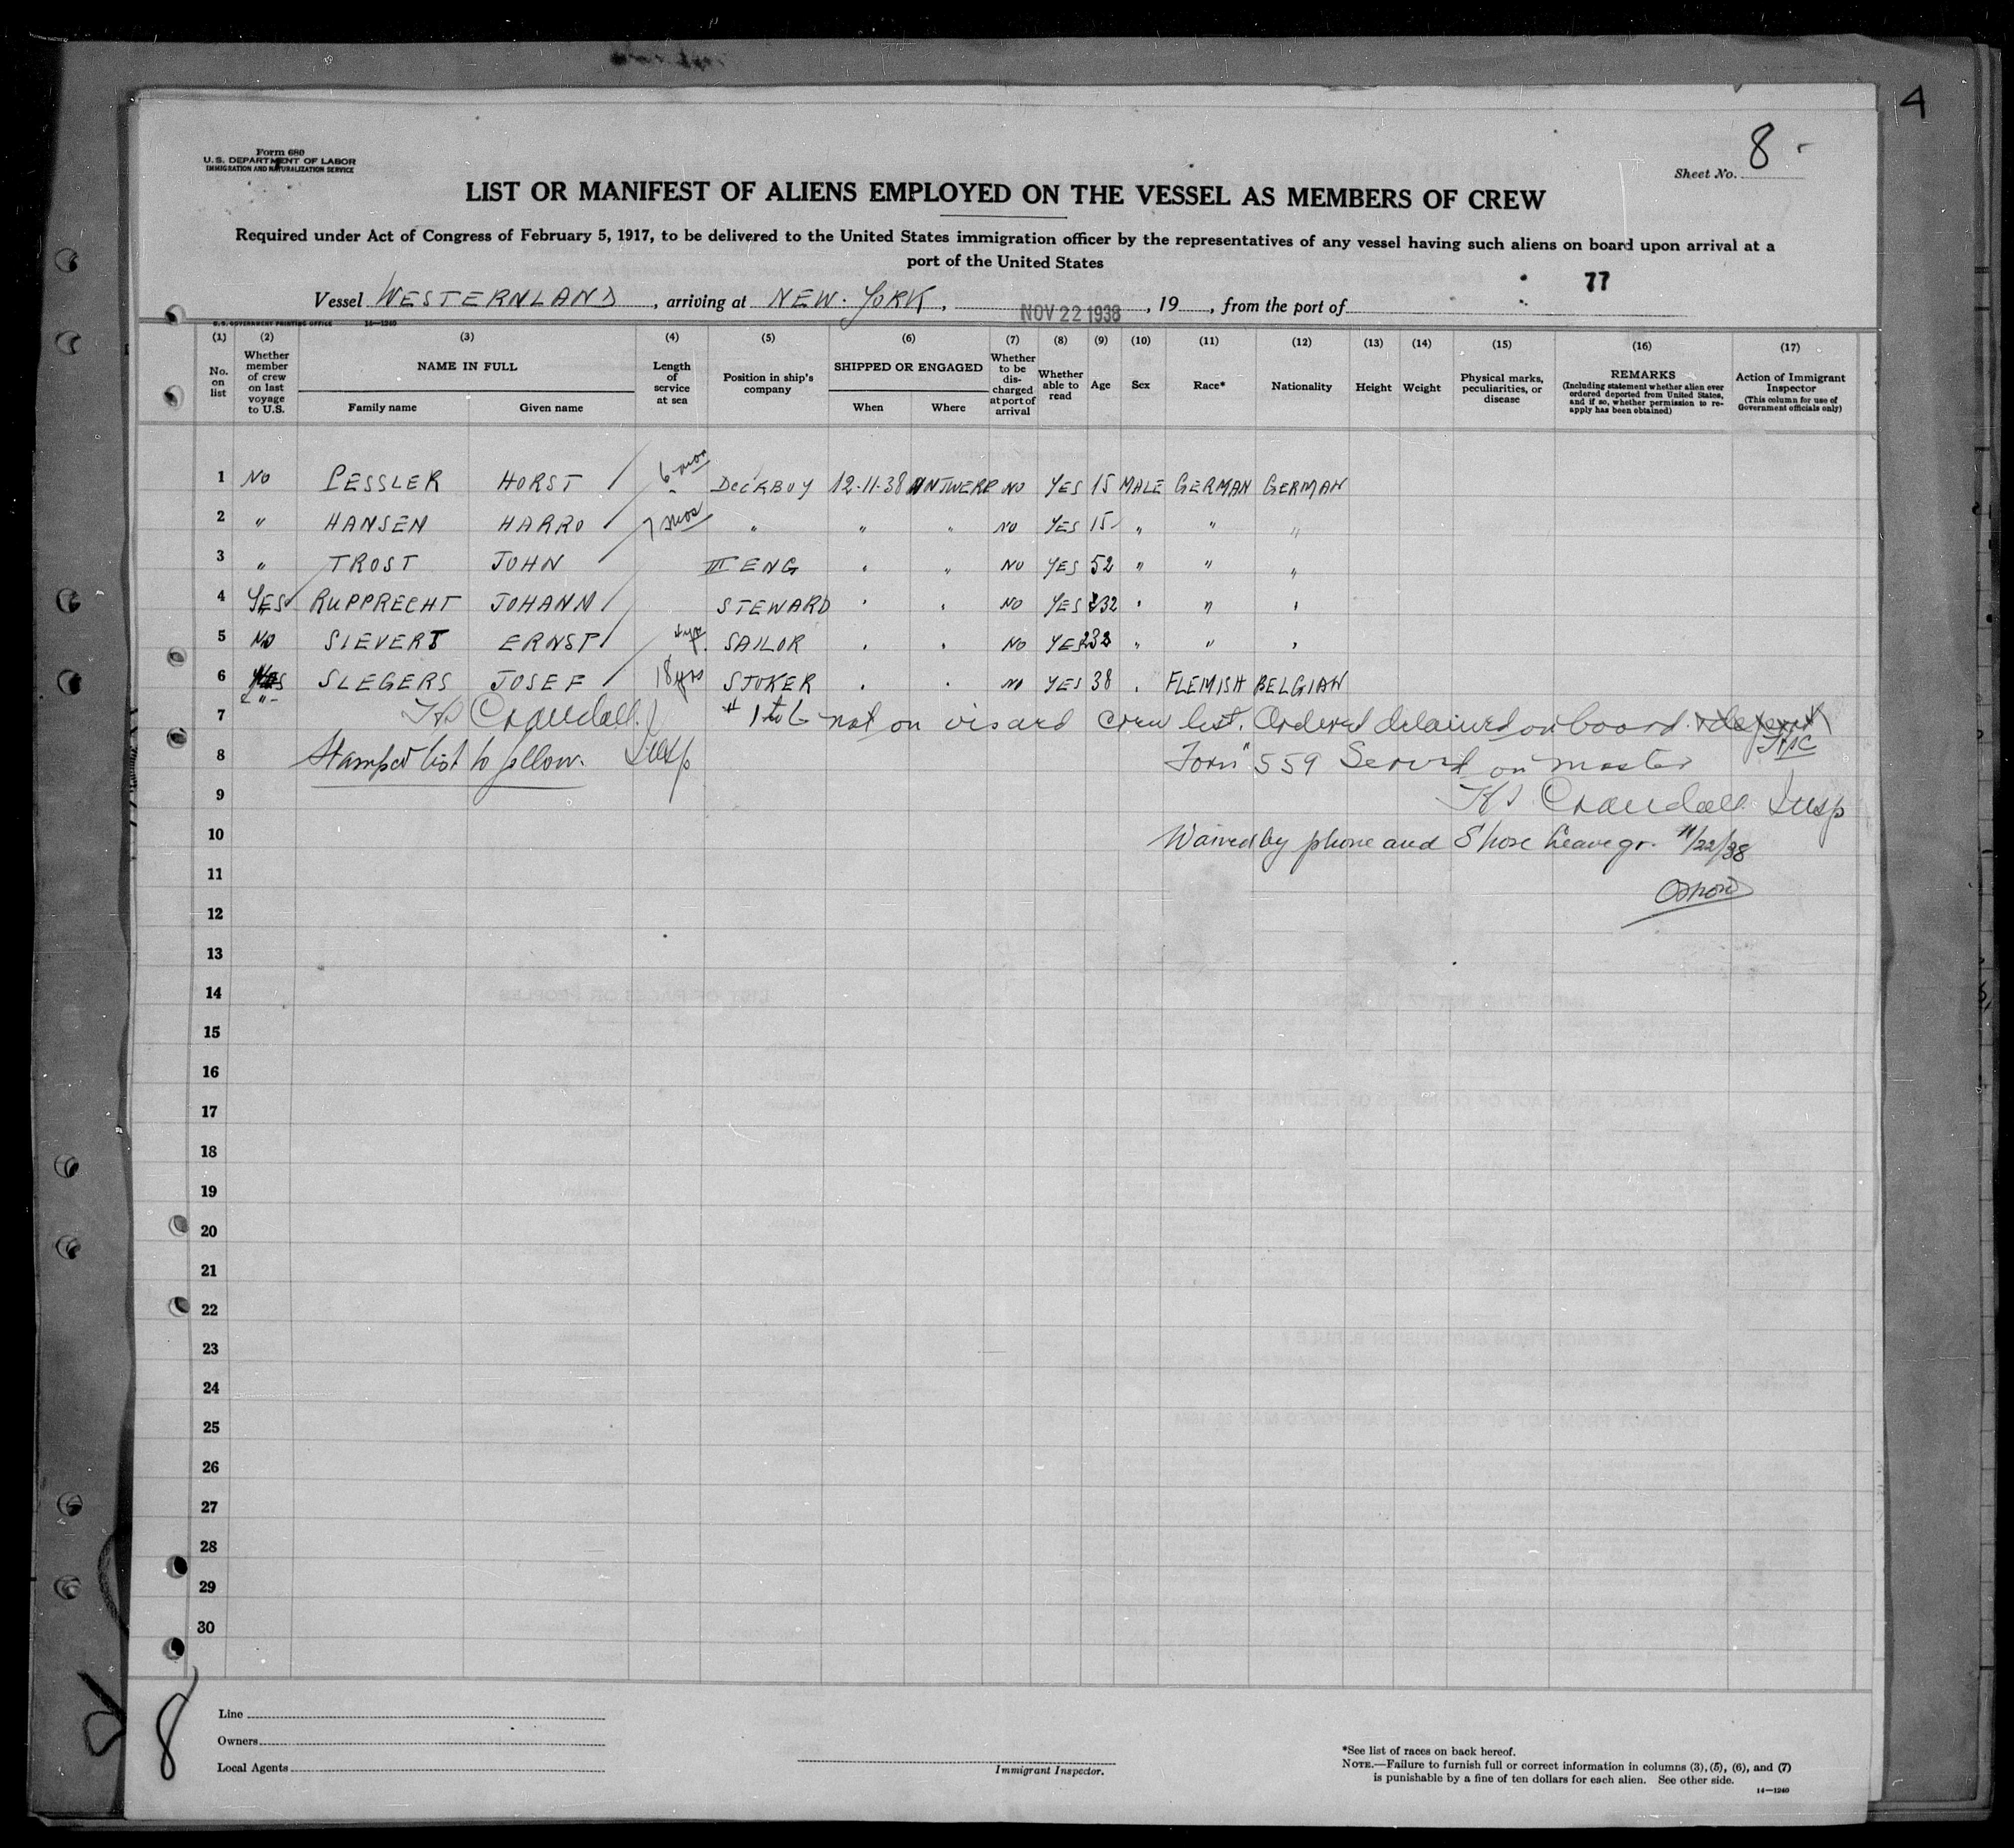 4
Form 680
U.S. DEPARTMENT OF LABOR
IMMIGRATION AND NATURALIZATION SERVICE
Sheet No. 8
LIST OR MANIFEST OF ALIENS EMPLOYED ON THE VESSEL AS MEMBERS OF CREW
Required under Act of Congress of February 5, 1917, to be delivered to the United States immigration officer by the representatives of any vessel having such aliens on board upon arrival at a
port of the United States
77
Vessel WESTERNLAND, arriving at NEW-YORK, NOV 22 1938, 19, from the port of
U.S. GOVERNMENT PRINTING OFFICE 14—1240
(1) No. on list
(2) Whether member of crew on last voyage to U.S.
(3) NAME IN FULL Family name Given name
(4) Length of service at sea
(5) Position in ship's company
(6) SHIPPED OR ENGAGED When Where
(7) Whether to be discharged at port of arrival
(8) Whether able to read
(9) Age
(10) Sex
(11) Race*
(12) Nationality
(13) Height
(14) Weight
(15) Physical marks, peculiarities, or disease
(16) REMARKS (Including statement whether alien ever ordered deported from United States, and if so, whether permission to reapply has been obtained)
(17) Action of Immigrant Inspector (This column for use of Government officials only)
1 NO PESSLER HORST 6 mos DECKBOY 12-11-38 ANTWERP NO YES 15 MALE GERMAN GERMAN
2 " HANSEN HARRO 7 mos " " " NO YES 15 " " "
3 " TROST JOHN III ENG " " NO YES 52 " " "
4 YES RUPPRECHT JOHANN STEWARD " " NO YES 32 " " "
5 NO SIEVERT ERNST SAILOR " " NO YES " " "
6 YES SLEGERS JOSEF 18 yrs STOKER " " NO YES 38 " FLEMISH BELGIAN
7 Crandall * 1 to 6 not on visaed crew list. Ordered detained on board
8 Stamped list to follow. Insp Form 559 Served on master
9 Crandall Insp
10 Waived by phone and Shore leave gr. 11/22/38
11
12
13
14
15
16
17
18
19
20
21
22
23
24
25
26
27
28
29
30
8
Line
Owners
Local Agents
Immigrant Inspector.
*See list of races on back hereof.
NOTE.—Failure to furnish full or correct information in columns (3), (5), (6), and (7)
is punishable by a fine of ten dollars for each alien. See other side.
14—1240